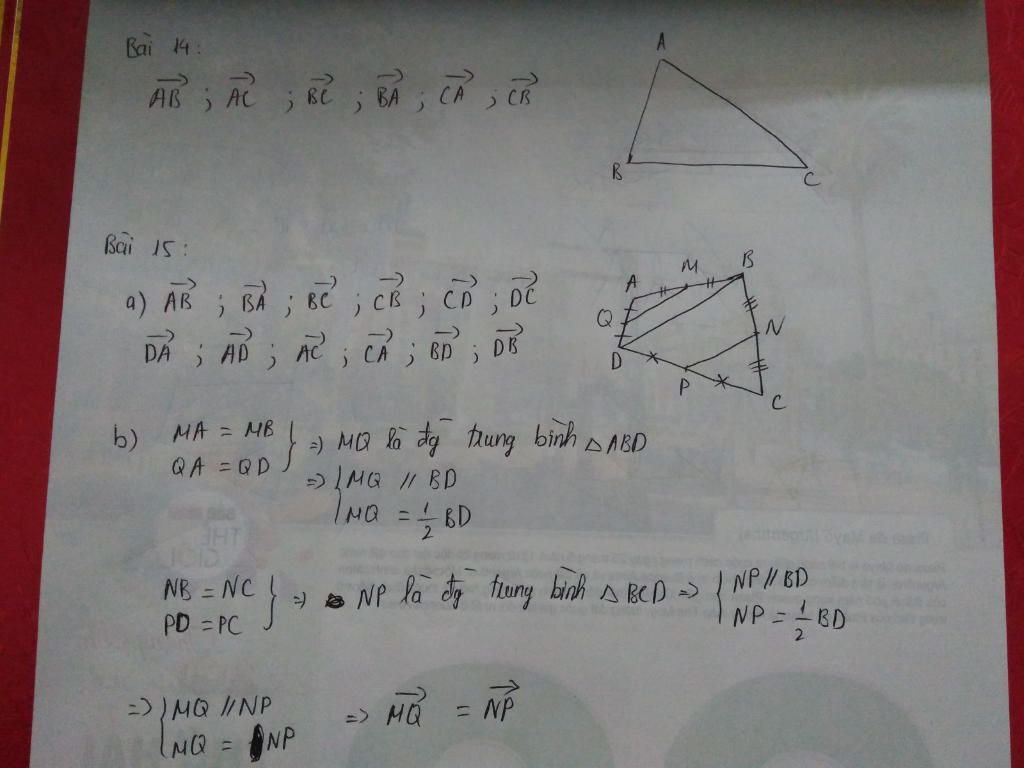 Bài 14:
A
→AB ; →AC ; →BC ; →BA ; →CA ; →CB
B C
Bài 15:
a) →AB ; →BA ; →BC ; →CB ; →CD ; →DC
→DA ; →AD ; →AC ; →CA ; →BD ; →DB
A M B
Q N
D P C
b) MA = MB
QA = QD } => MQ là đg trung bình △ABD
=> { MQ // BD
MQ = 1/2 BD
NB = NC
PD = PC } => NP là đg trung bình △BCD => { NP // BD
NP = 1/2 BD
=> { MQ // NP
MQ = NP => →MQ = →NP